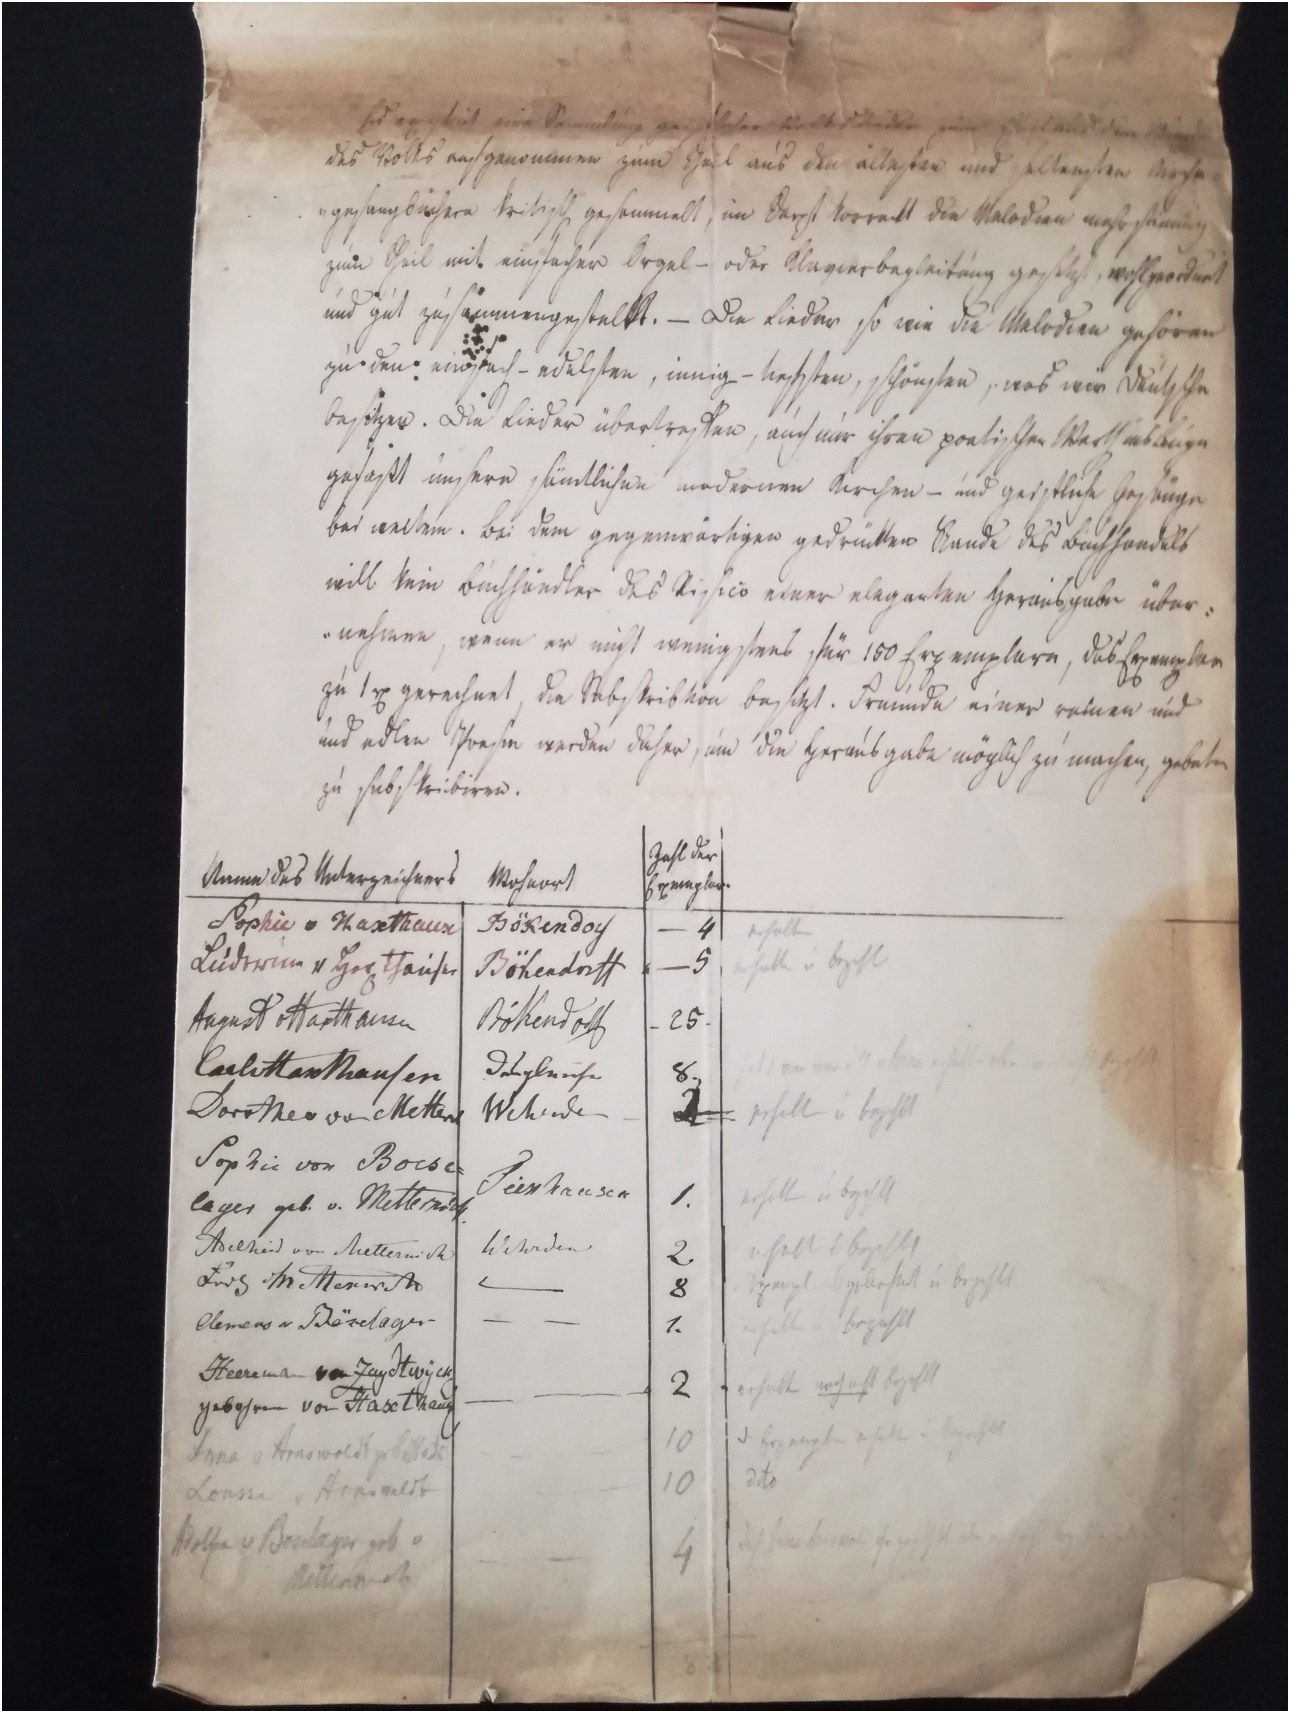 Es existirt eine Sammlung geistlicher Volkslieder zum Theil aus dem Munde
des Volks aufgenommen zum Theil aus den ältesten und seltensten Kirchen=
=gesangbüchern kritisch gesammelt, im Satze korrekt die Melodien mehrstimmig
zum Theil mit einfacher Orgel- oder Klavierbegleitung gesetzt, wohlgeordnet
und gut zusammengestellt. — Die Lieder so wie die Melodien gehören
zu den einfach-edelsten, innig-tiefsten, schönsten, was wir Deutsche
besitzen. Die Lieder übertreffen, auch nur ihren poetischen Werth ins Auge
gefaßt unsere sämtlichen modernen Kirchen- und geistliche Gesänge
bei weitem. Bei dem gegenwärtigen gedrückten Stande des Buchhandels
will kein Buchhändler das Risico einer eleganten Herausgabe über=
=nehmen, wenn er nicht wenigstens für 150 Exemplare, das Exemplar
zu 1 gerechnet, die Subskribtion besitzt. Freunde einer reinen und
und edlen Poesie werden daher, um die Herausgabe möglich zu machen, gebeten
zu subskribiren.
Name des Unterzeichners Wohnort Zahl der Exemplare
Sophie v Haxthausen Bökendorf — 4 erhalten
Ludowine v Haxthausen Bökendorff — 5 erhalten u bezahlt
August v Haxthausen Bökendorff - 25 -
Carl v Haxthausen Desgleichen 8.
Dorothea von Metternich Wehrden 2 erhalten u bezahlt
Sophie von Boese=
lager geb. v. Metternich. Peenhausen 1. erhalten u bezahlt
Adelheid von Metternich Wehrden 2 erhalt u bezahlt
Fritz Metternich — 8 Exempl. u bezahlt
Clemens v Böselager — — 1. erhalten u bezahlt
Heereman von Zuydtwyck
gebohren von Haxthausen — — 2 erhalten noch nicht bezahlt
Anna v Arnswaldt geb Haxth — — 10 Exemplare erhalt u bezahlt
Louise v Arnswaldt 10 dito
v Boselager geb v
Metternich — — 4